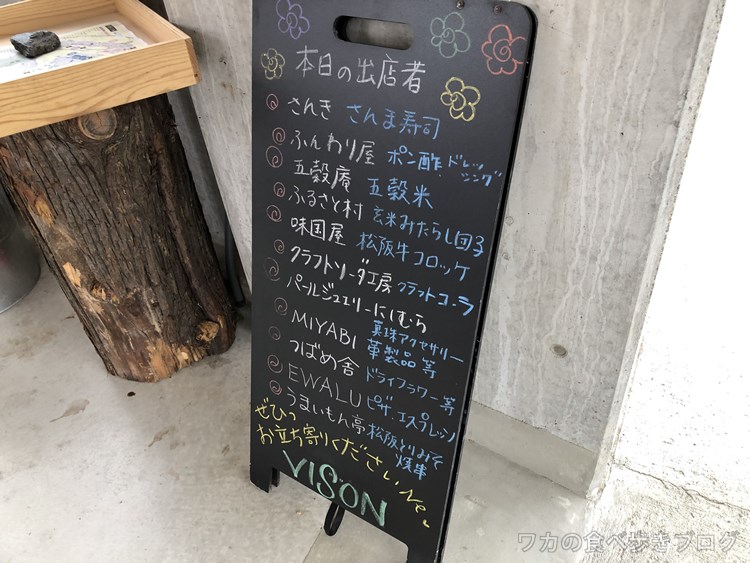 本日の出店者
さんき さんま寿司
ふんわり屋 ポン酢、ドレッシング
五穀庵 五穀米
ふるさと村 玄米みたらし団子
味国屋 松阪牛コロッケ
クラフトソーダ工房 クラフトコーラ
パールジュエリーにしむら 真珠アクセサリー
MIYABI 革製品 等
つばめ舎 ドライフラワー等
EWALU ピザ、エスプレッソ
うまいもん亭 松阪とりみそ焼串
ぜひっ
お立ち寄りください
VISON
ワカの食べ歩きブログ